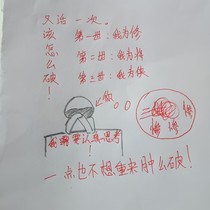 又活一次。
该怎么破!
第一世:我为修
第二世:我为情
第三世:我为依
你
我需要认真思考
情 修
一点也不想重来肿么破!